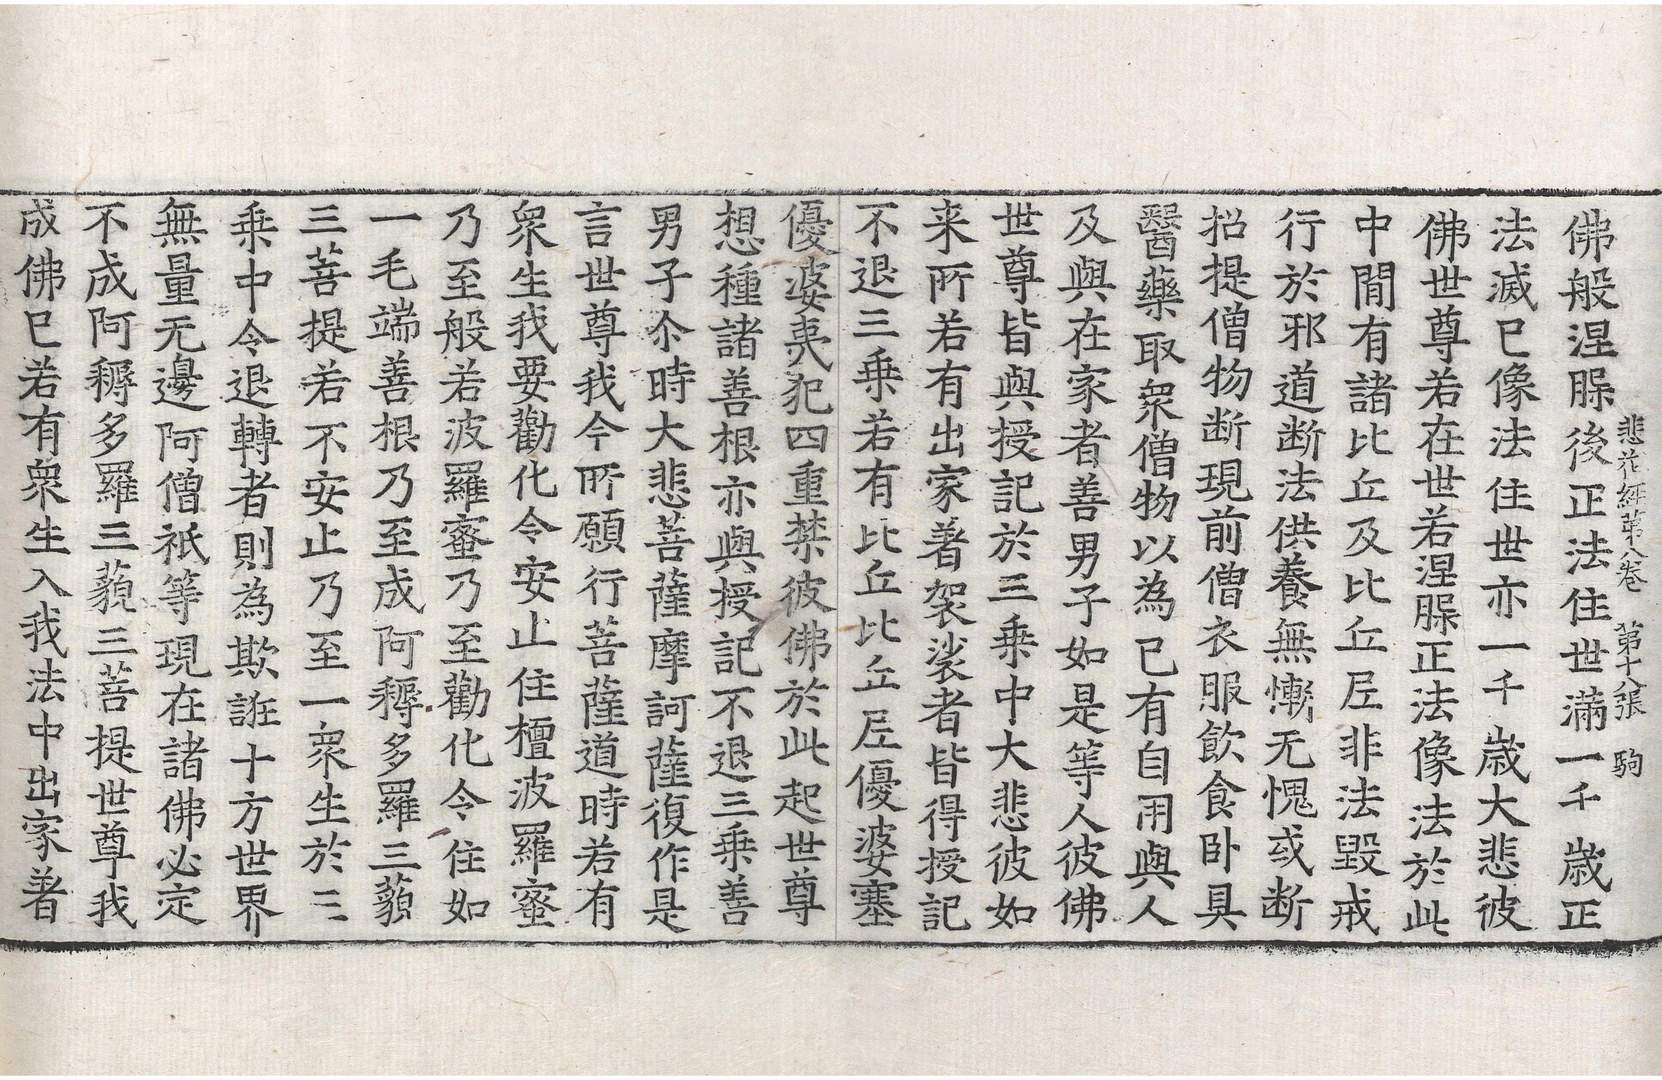 悲花經第八卷 第十八張 駒
佛般涅脲後正法住世滿一千歲正
法滅已像法住世亦一千歲大悲彼
佛世尊若在世若涅脲正法像法於此
中閒有諸比丘及比丘尼非法毀戒
行於邪道断法供養無慚无愧或断
招提僧物断現前僧衣服飲食卧具
醫藥取衆僧物以為已有自用與人
及與在家者善男子如是等人彼佛
世尊皆與授記於三乗中大悲彼如
来所若有出家著袈裟者皆得授記
不退三乗若有比丘比丘尼優婆塞
優婆夷犯四重禁彼佛於此起世尊
想種諸善根亦與授記不退三乗善
男子尒時大悲菩薩摩訶薩復作是
言世尊我今所願行菩薩道時若有
衆生我要勸化令安止住檀波羅蜜
乃至般若波羅蜜乃至勸化令住如
一毛端善根乃至成阿耨多羅三藐
三菩提若不安止乃至一衆生於三
乗中令退轉者則為欺誑十方世界
無量无邊阿僧祇等現在諸佛必定
不成阿耨多羅三藐三菩提世尊我
成佛已若有衆生入我法中出家著